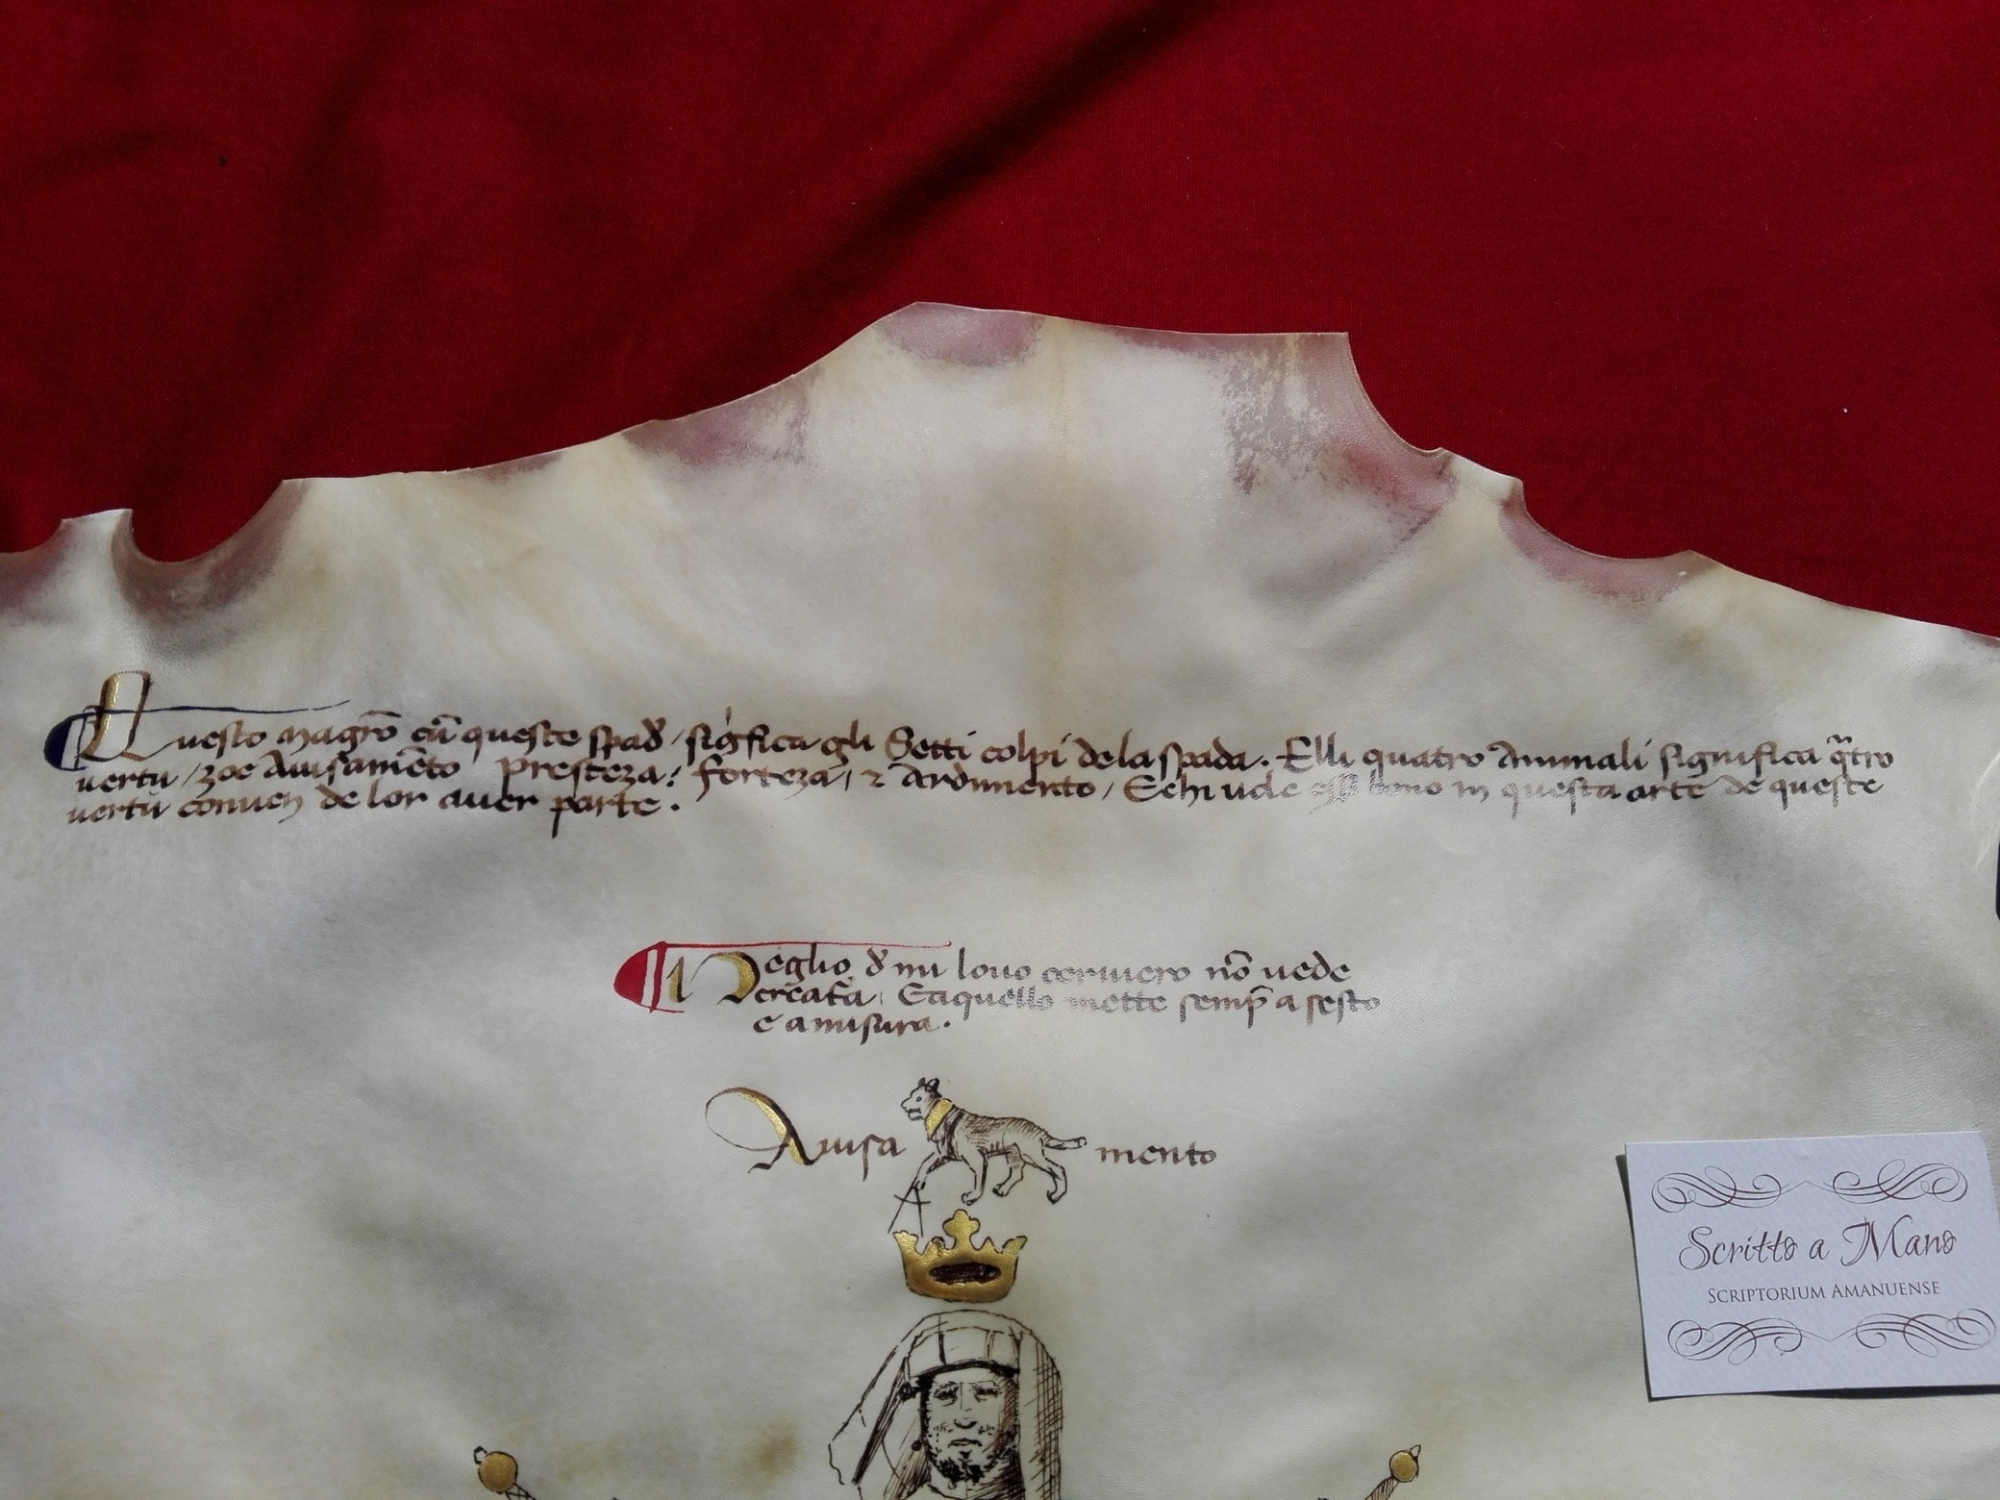 Questo magrõ cũ queste spad̃ / sigfica gli Setti colpi dela spada. Elli quatro Animali significa q̃tro
vertu / zoe Avisamẽto / Presteza: forteza, ꝛ ardimento / E chi vole ess̃ bono in questa arte de queste
vertù conven de lor aver parte.
Meglio d̃ mi lovo cerviero nõ vede
creat̃a. E aquello mette semp̃ a sesto
e a misura.
Avisa mento
Scritto a Mano
SCRIPTORIUM AMANUENSE